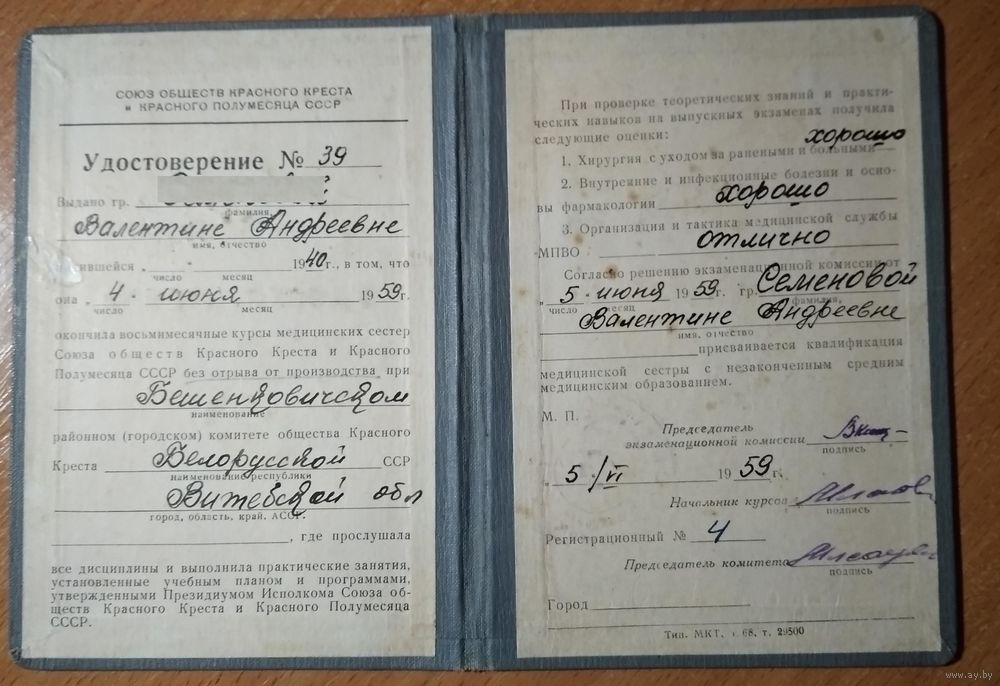 СОЮЗ ОБЩЕСТВ КРАСНОГО КРЕСТА
и КРАСНОГО ПОЛУМЕСЯЦА СССР
Удостоверение № 39
Выдано гр.
фамилия,
Валентине Андреевне
имя, отчество
родившейся „ 1940 г., в том, что
число месяц
она „ 4 " июня 1959 г.
число месяц
окончила восьмимесячные курсы медицинских сестер
Союза обществ Красного Креста и Красного
Полумесяца СССР без отрыва от производства при
Бешенковичском
наименование
районном (городском) комитете общества Красного
Креста Белорусской ССР
наименование республики
Витебской обл
город, область, край, АССР.
, где прослушала
все дисциплины и выполнила практические занятия,
установленные учебным планом и программами,
утвержденными Президиумом Исполкома Союза об-
ществ Красного Креста и Красного Полумесяца
СССР.
При проверке теоретических знаний и практи-
ческих навыков на выпускных экзаменах получила
следующие оценки:
хорошо
1. Хирургия с уходом за ранеными и больными
2. Внутренние и инфекционные болезни и осно-
вы фармакологии хорошо
3. Организация и тактика медицинской службы
МПВО отлично
Согласно решению экзаменационной комиссии от
„ 5 " июня 1959 г. гр. Семеновой
число месяц фамилия,
Валентине Андреевне
имя, отчество
присваивается квалификация
медицинской сестры с незаконченным средним
медицинским образованием.
М. П.
Председатель
экзаменационной комиссии
подпись
„ 5 "/VI 1959 г.
Начальник курсов
подпись
Регистрационный № 4
Председатель комитета
подпись
Город
Тип. МКТ, з. 68, т. 29500
www.ay.by